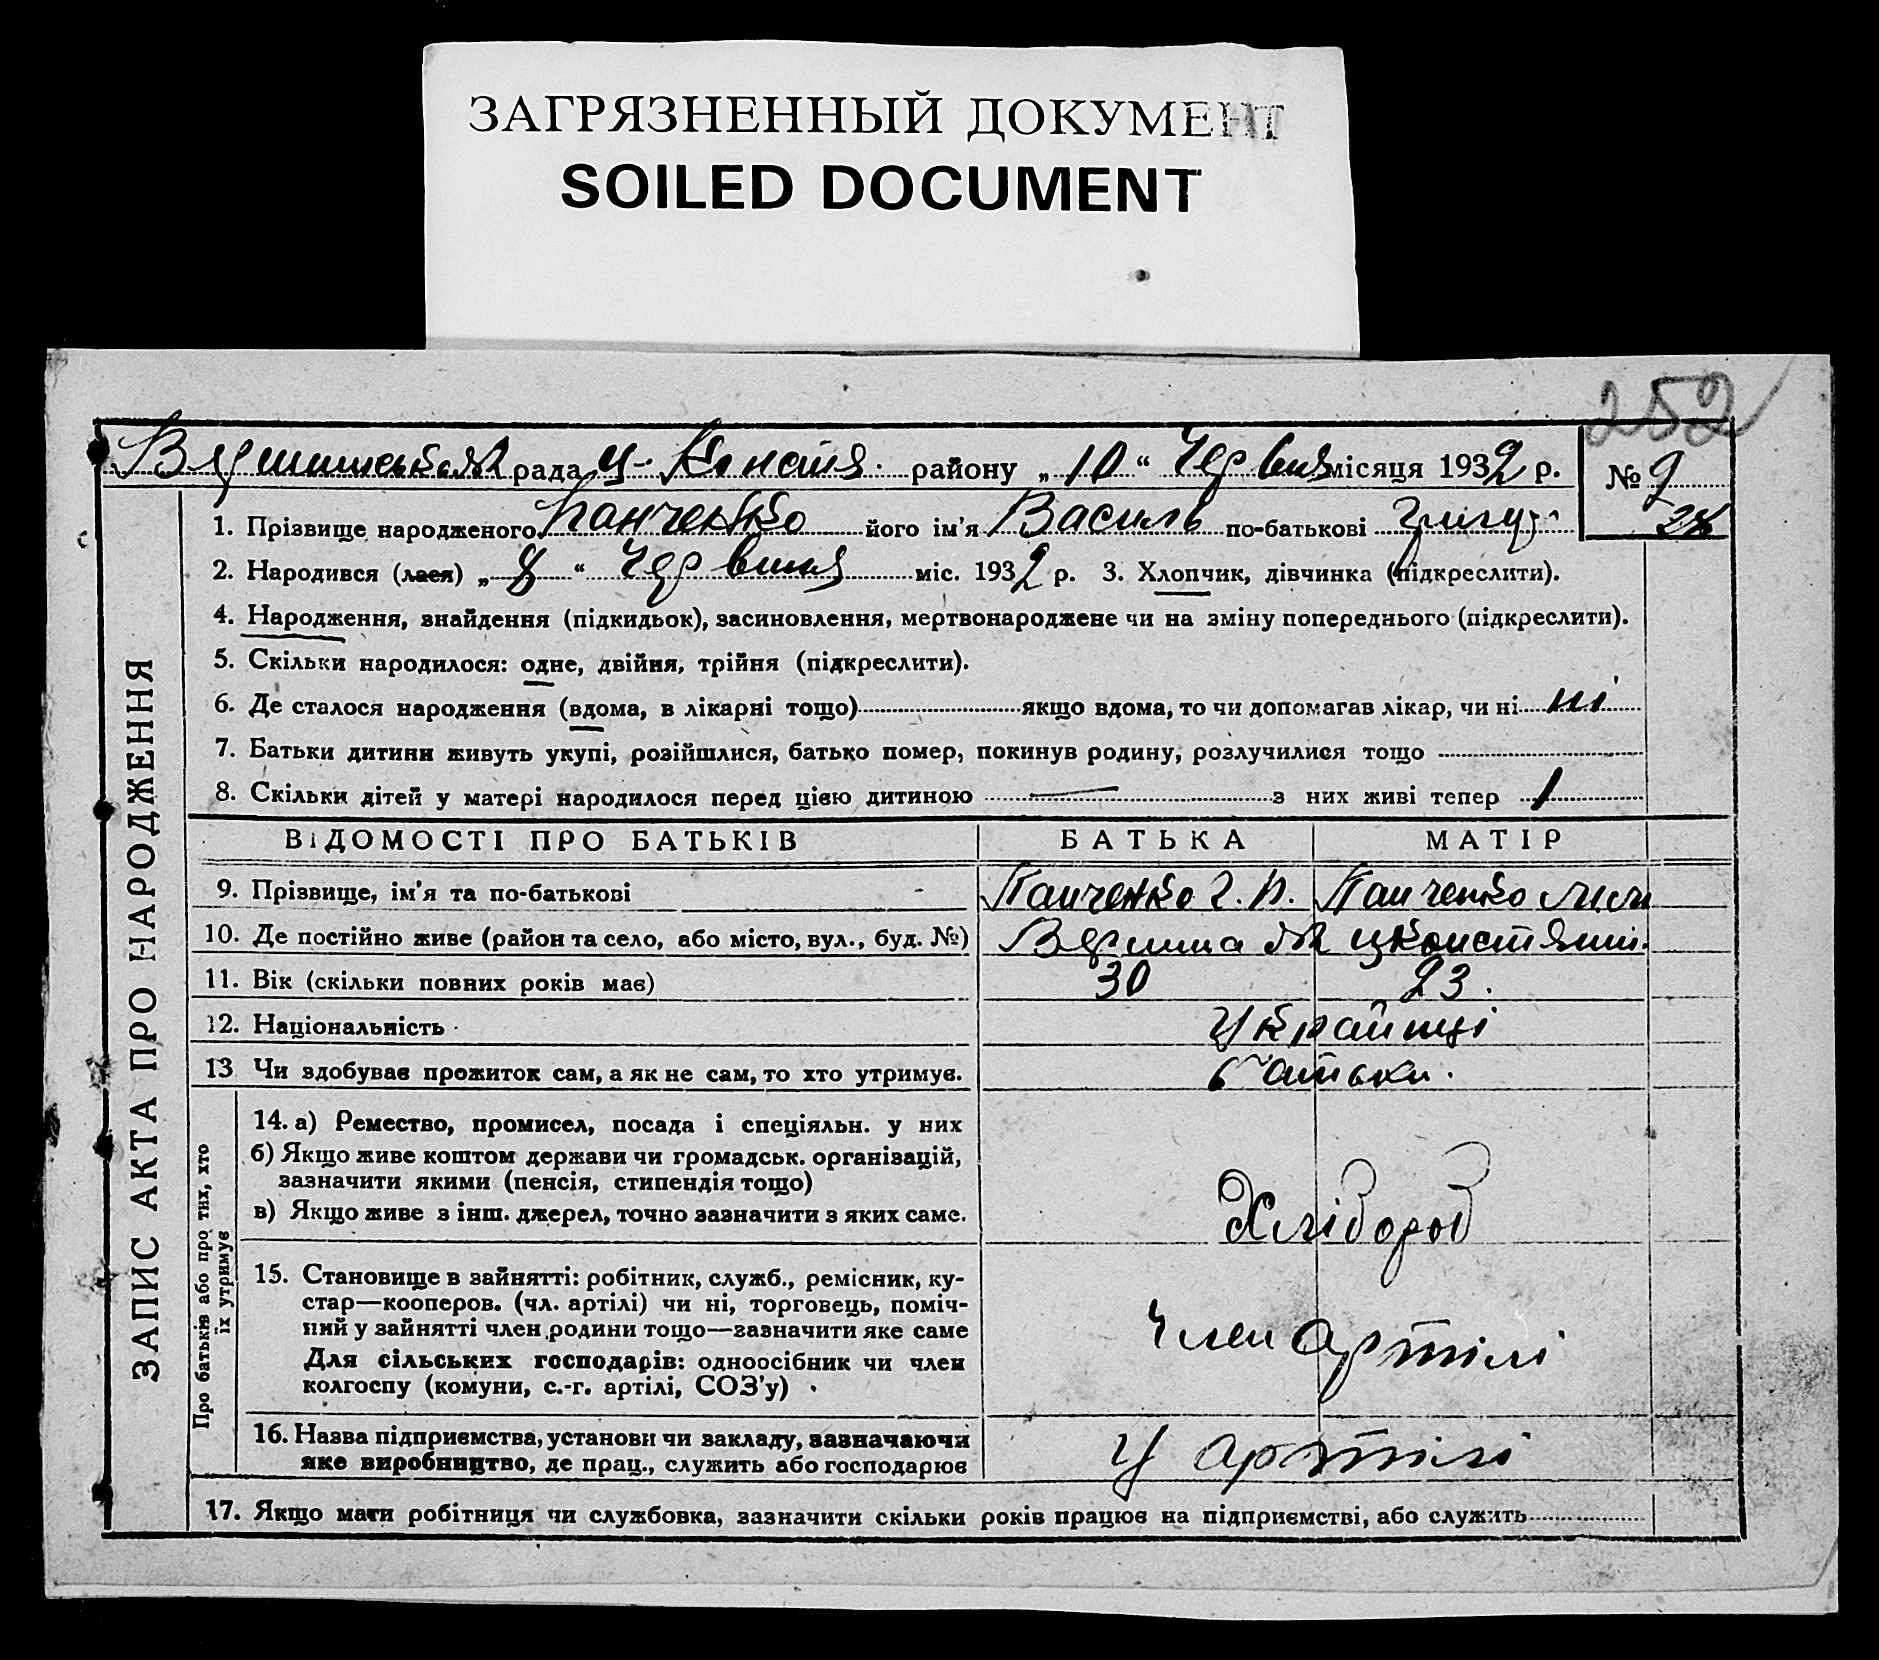 ЗАГРЯЗНЕННЫЙ ДОКУМЕНТ
SOILED DOCUMENT
252
рада району „10“ Червня місяця 1932 р. № 9
28
ЗАПИС АКТА ПРО НАРОДЖЕННЯ
1. Прізвище народженого Панченко його ім'я Василь по-батькові Григор
2. Народився (лася) „8“ Червння міс. 1932 р. 3. Хлопчик, дівчинка (підкреслити).
4. Народження, знайдення (підкидьок), засиновлення, мертвонароджене чи на зміну попереднього (підкреслити).
5. Скільки народилося: одне, двійня, трійня (підкреслити).
6. Де сталося народження (вдома, в лікарні тощо) якщо вдома, то чи допомагав лікар, чи ні ні
7. Батьки дитини живуть укупі, розійшлися, батько помер, покинув родину, розлучилися тощо
8. Скільки дітей у матері народилося перед цією дитиною — з них живі тепер 1
ВІДОМОСТІ ПРО БАТЬКІВ БАТЬКА МАТІР
9. Прізвище, ім'я та по-батькові Панченко Г. П. Панченко
10. Де постійно живе (район та село, або місто, вул., буд. №)
11. Вік (скільки повних років має) 30 23.
12. Національність Українці
13 Чи здобував прожиток сам, а як не сам, то хто утримує. батьки.
Про батьків або про тих, хто
їх утримує
14. а) Ремество, промисел, посада і спеціяльн. у них
б) Якщо живе коштом держави чи громадськ. організацій,
зазначити якими (пенсія, стипендія тощо)
в) Якщо живе з інш. джерел, точно зазначити з яких саме. Хлібороб
15. Становище в зайнятті: робітник, служб., ремісник, ку-
стар—кооперов. (чл. артілі) чи ні, торговець, поміч-
ний у зайнятті член родини тощо—зазначити яке саме
Для сільських господарів: одноосібник чи член
колгоспу (комуни, с.-г. артілі, СОЗ'у)
Член артілі
16. Назва підприємства, установи чи закладу, зазначаючи
яке виробництво, де прац., служить або господарює
У артілі
17. Якщо мати робітниця чи службовка, зазначити скільки років працює на підприємстві, або служить